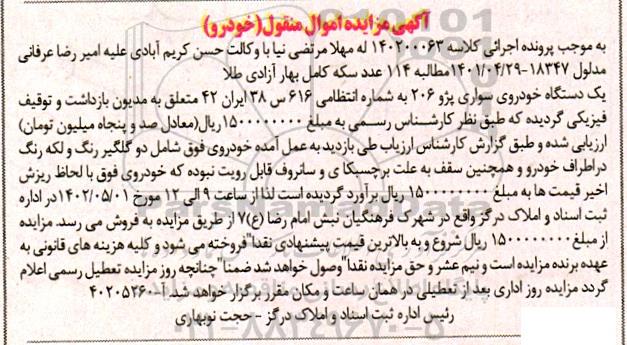 آگهی مزایده اموال منقول(خودرو)
به موجب پرونده اجرائی کلاسه ۱۴۰۲۰۰۰۶۳ له مهلا مرتضی نیا با وکالت حسن کریم آبادی علیه امیر رضا عرفانی
مدلول ۱۸۳۴۷-۱۴۰۱/۰۴/۲۹مطالبه ۱۱۴ عدد سکه کامل بهار آزادی طلا
یک دستگاه خودروی سواری پژو ۲۰۶ به شماره انتظامی ۶۱۶ س ۳۸ ایران ۴۲ متعلق به مدیون بازداشت و توقیف
فیزیکی گردیده که طبق نظر کارشناس رسمی به مبلغ ۱۵۰۰۰۰۰۰۰۰ریال(معادل صد و پنجاه میلیون تومان)
ارزیابی شده و طبق گزارش کارشناس ارزیاب طی بازدید به عمل آمده خودروی فوق شامل دو گلگیر رنگ و لکه رنگ
دراطراف خودرو و همچنین سقف به علت برچسبکا ی و سانروف قابل رویت نبوده که خودروی فوق با لحاظ ریزش
اخیر قیمت ها به مبلغ ۱۵۰۰۰۰۰۰۰۰ ریال برآورد گردیده است لذا از ساعت ۹ الی ۱۲ مورخ ۱۴۰۲/۰۵/۰۱در اداره
ثبت اسناد و املاک درگز واقع در شهرک فرهنگیان نبش امام رضا (ع)۷ از طریق مزایده به فروش می رسد. مزایده
از مبلغ۱۵۰۰۰۰۰۰۰۰ ریال شروع و به بالاترین قیمت پیشنهادی نقدا"فروخته می شود و کلیه هزینه های قانونی به
عهده برنده مزایده است و نیم عشر و حق مزایده نقدا"وصول خواهد شد ضمنا" چنانچه روز مزایده تعطیل رسمی اعلام
گردد مزایده روز اداری بعد از تعطیلی در همان ساعت و مکان مقرر برگزار خواهد شد. آ-۴۰۲۰۵۲۶۰
رئیس اداره ثبت اسناد و املاک درگز - حجت نوبهاری